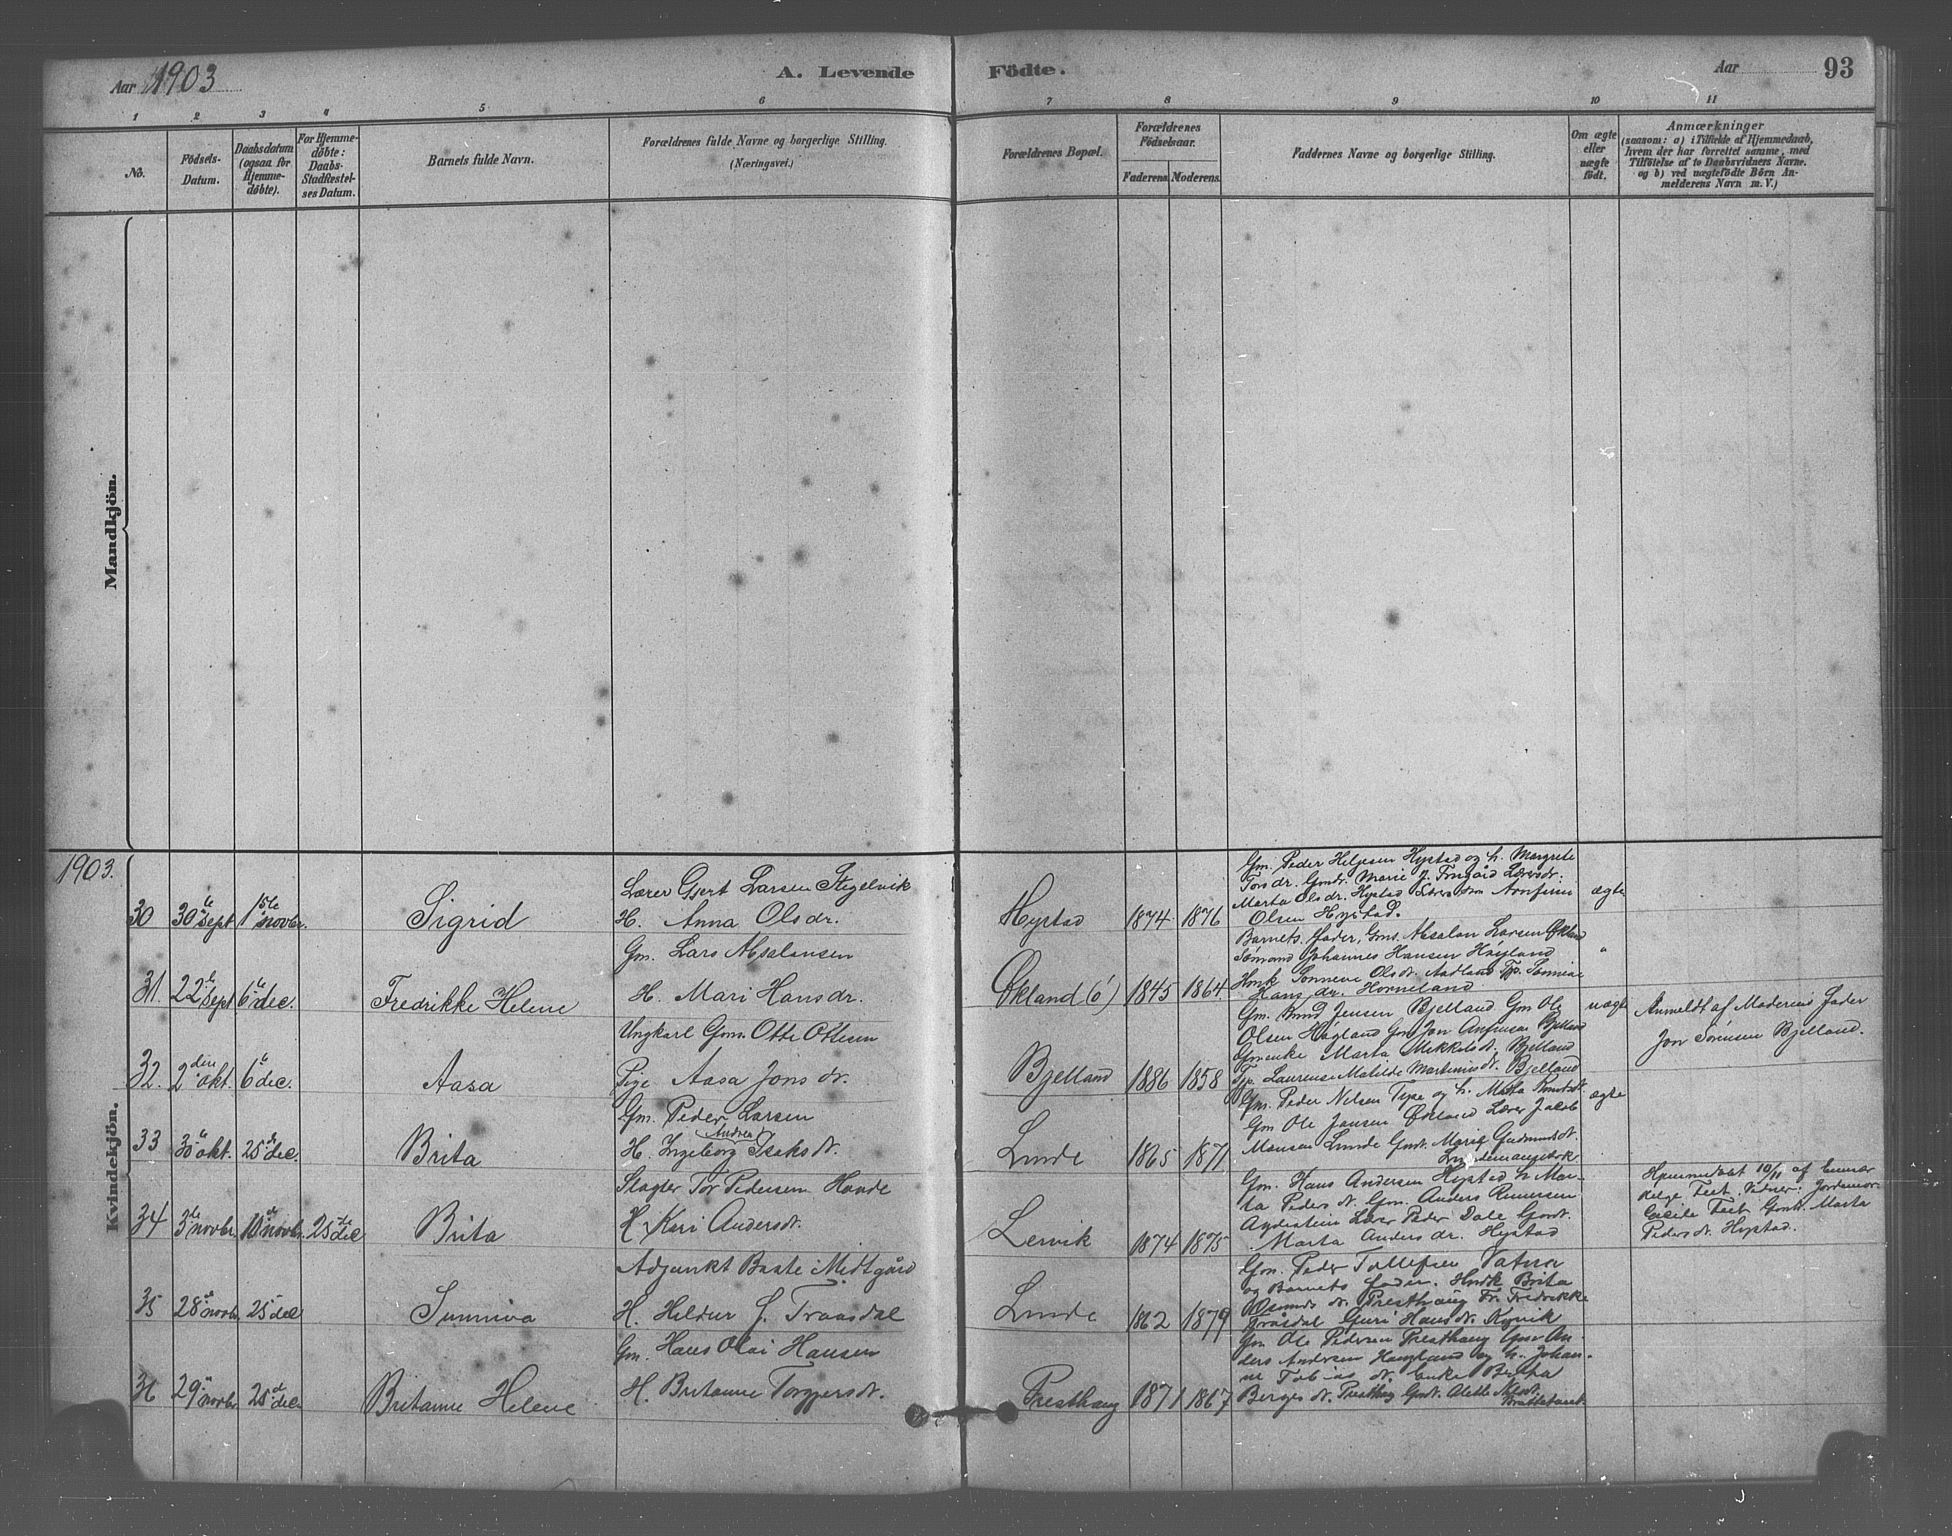 Aar 1903
A. Levende
Födte.
Aar
93
1 2 3 4 5 6 7 8 9 10 11
No.
Födsels-
Datum.
Daabsdatum
(ogsaa for
Hjemme-
döbte).
For Hjemme-
döbte:
Daabs-
Stadfæstel-
ses Datum.
Barnets fulde Navn.
Forældrenes fulde Navne og borgerlige Stilling.
(Næringsvei.)
Forældrenes Bopæl.
Forældrenes
Födselsaar.
Faderens.
Moderens.
Faddernes Navne og borgerlige Stilling.
Om ægte
eller
uægte
födt.
Anmærkninger
(saasom: a) i Tilfælde af Hjemmedaab,
hvem der har forrettet samme, med
Tilföielse af to Daabsvidners Navne.
og b) ved uægtefödte Börn An-
melderens Navn m. V.)
Mandkjön.
Kvindekjön.
1903.
30
30 te sept
1ste novbr.
Sigrid
Lærer Gjert Larsen Stegelvik
H. Anna Olsdr.
Hystad
1874
1876
Gm. Peder Helgesen Hystad og h. Margrete
Marta Olsdr. Hystad
Olsen Hystad.
ægte
31.
22 sept
6te dec.
Fredrikke Helene
Gm. Lars Absalonsen
H. Mari Hansdr.
Økland (ö)
1845
1864
Barnets Fader, Gms. Absalon Larsen Økland
Johannes Hansen Høyland
Sønneve Olsdr. Aadland
Hans dr. Horneland
"
32.
2den okt.
6te dec.
Aasa
Ungkarl Gms. Otte Ottesen
Pige Aasa Jonsdr.
Bjelland
1886
1858
Gm. Knud Jensen Bjelland Gm Ole
Olsen Høgland Gm Jon Anfinsen Bjelland
Marta Mikkelsdt. Bjelland
Laurense Matilde Martinusdt. Bjelland
uægte
Anmeldt af Moderens Fader
Jon Sørensen Bjelland.
33
30te okt.
25de dec.
Brita
Gm. Peder Larsen
H. Ingeborg Andrea Isaksdt.
Lunde
1865
1871
Gm. Peder Nielsen Tyse og h. Marta Knutsdt.
Gm Ole Jansen Økland Lærer Jakob
Monsen Lunde Gmdt. Maria Gudmundsdt.
ægte
34
3de novbr.
10de novbr.
25de dec
Brita
Slagter Tor Pedersen Hovde
H. Kari Andersdt.
Lervik
1874
1875
Gm. Hans Andersen Hystad h. Mar-
ta Pedersdt. Gm. Anders Reinertsen
Lærer Peder Dale Gmdt.
Marta Anders dr. Hystad
Hjemmedøbt 10/11 af
Feet. Vidner: Jordemor
Cecilie Feet Gmdt. Marta
Pedersdt. Hystad.
35
28de novbr.
25de dec
Sunniva
Adjunkt Baste Midtgård
H. Heldur J. Traasdal
Lunde
1862
1879
Gm. Peder Tollefsen Vatna
og Barnets fader. Brita
Presthaug Fr. Fredrikke
Tråsdal Guri Hansdt. Kyvik
36
29de novbr
25de dec.
Britanne Helene
Gm. Hans Olai Hansen
H. Britanne Torgjersdt.
Presthaug
1871
1867
Gm Ole Pedersen Presthaug Gms An-
ders Andersen Haugland og h. Johan-
ne Tobiasdt. Enke Brita
Bergesdt. Presthaug Gmdt.